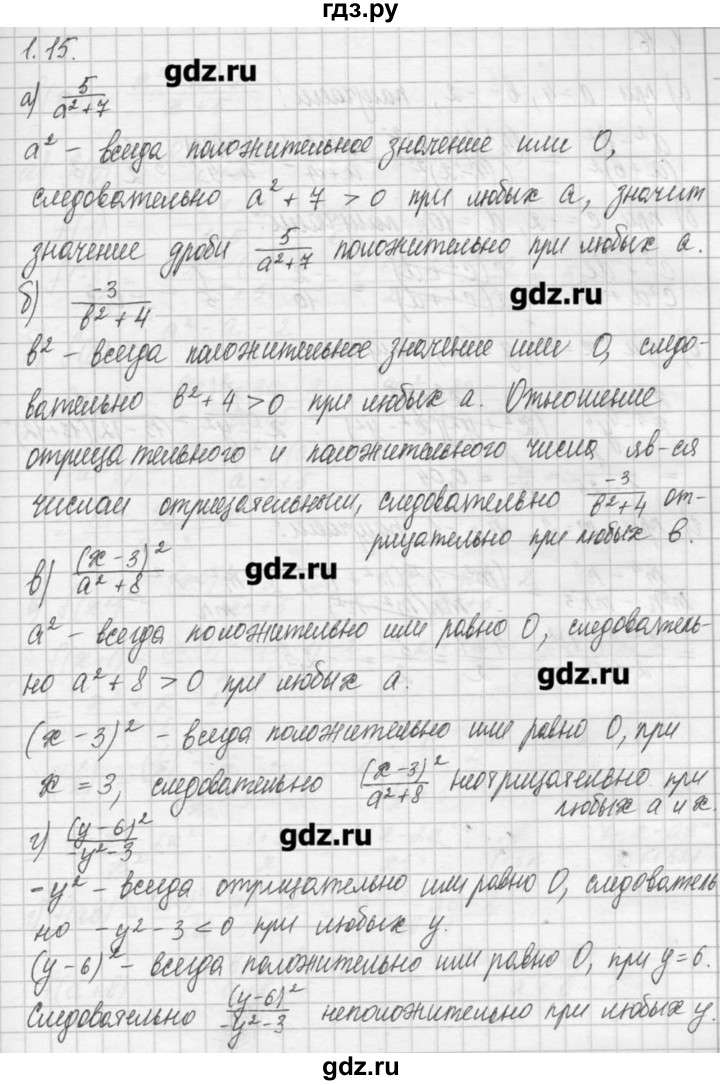 гдз.ру
1.15.
gdz.ru
а) 5/(a²+7)
a² – всегда положительное значение или 0,
следовательно a²+7 >0 при любых a, значит
значение дроби 5/(a²+7) положительно при любых a.
gdz.ru
б) -3/(в²+4)
в² – всегда положительное значение или 0, следо-
вательно в²+4 >0 при любых a. Отношение
отрицательного и положительного числа яв-ся
числом отрицательным, следовательно -3/(в²+4) от-
рицательно при любых в.
gdz.ru
в) (x-3)²/(a²+8)
a² – всегда положительно или равно 0, следователь-
но a²+8 >0 при любых a.
gdz.ru
(x-3)² – всегда положительно или равно 0, при
x = 3, следовательно (x-3)²/(a²+8) неотрицательно при
любых a и x.
gdz.ru
г) (y-6)²/(-y²-3)
-y² – всегда отрицательно или равно 0, следователь
но -y²-3 <0 при любых y.
(y-6)² – всегда положительно или равно 0, при y=6.
Следовательно (y-6)²/(-y²-3) неположительно при любых y.
gdz.ru